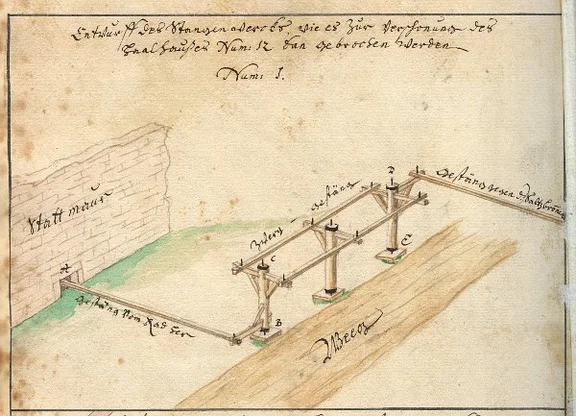 Entwurff des Stangenwercks, wie es zur Verschonung des
Haalhauses Num: 12 kan gebrochen werden
Num: 1.
Statt maur
A
Gestäng vom Rad her
Zwerg Gestäng
C
B
D
E
Gestäng gegen
Weeg